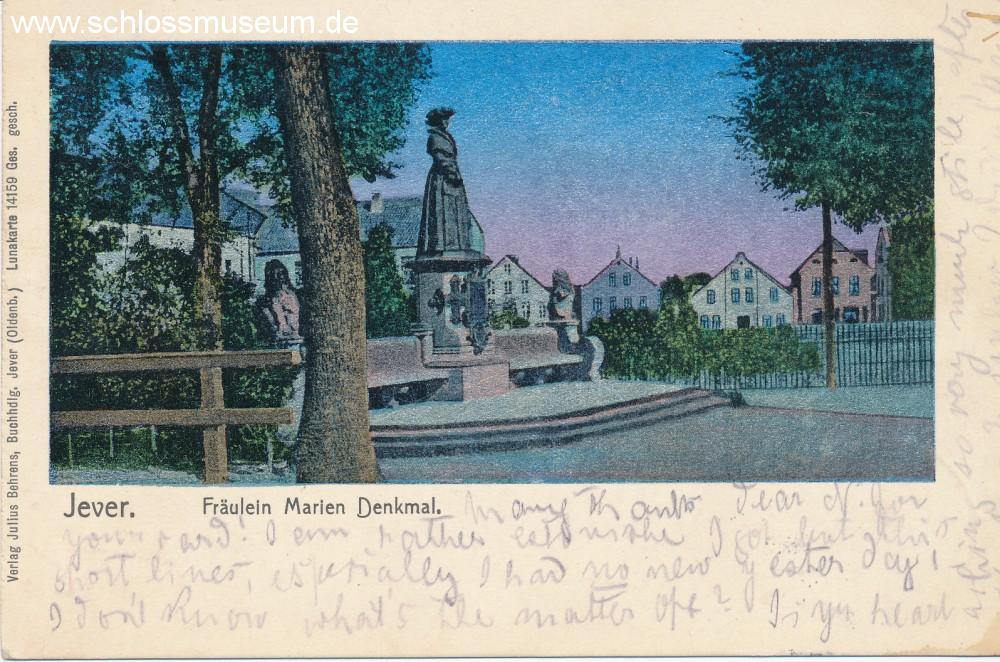 www.schlossmuseum.de
Verlag Julius Behrens, Buchhdlg. Jever (Oldenb.) Lunakarte 14159 Ges. gesch.
Jever.
Fräulein Marien Denkmal.
Many Thanks Dear for
your card! I am rather I got but this
short lines, especially I had no new yesterday!
I don't Know what's the matter Of? Is yr heart
aching so very much still after